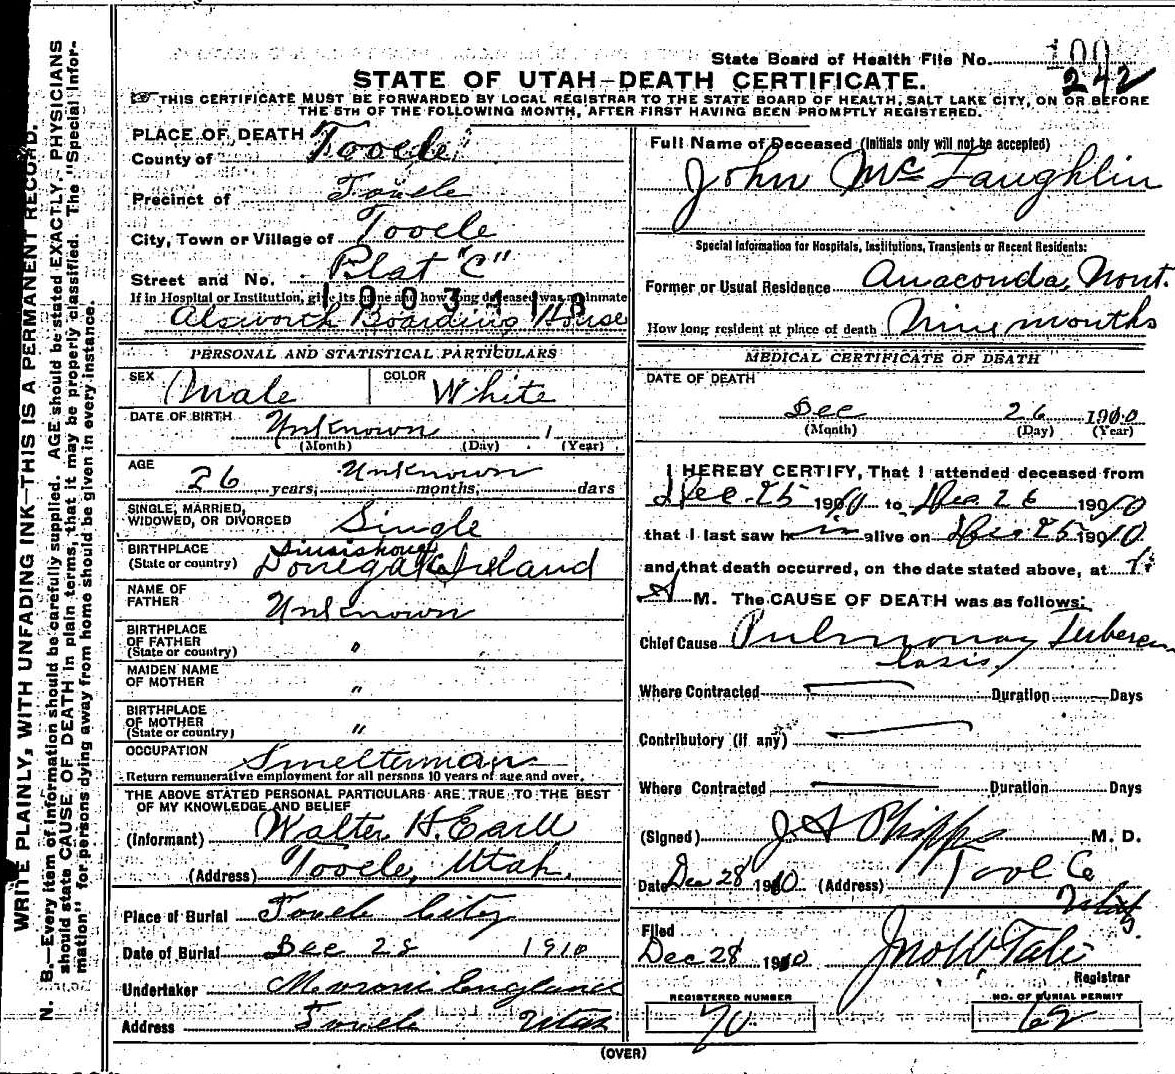 State Board of Health File No. 242
STATE OF UTAH—DEATH CERTIFICATE.
THIS CERTIFICATE MUST BE FORWARDED BY LOCAL REGISTRAR TO THE STATE BOARD OF HEALTH, SALT LAKE CITY, ON OR BEFORE
THE 5TH OF THE FOLLOWING MONTH, AFTER FIRST HAVING BEEN PROMPTLY REGISTERED.
WRITE PLAINLY, WITH UNFADING INK—THIS IS A PERMANENT RECORD.
N. B.—Every item of information should be carefully supplied. AGE should be stated EXACTLY. PHYSICIANS
should state CAUSE OF DEATH in plain terms, that it may be properly classified. The "Special Infor-
mation" for persons dying away from home should be given in every instance.
PLACE OF DEATH
County of Tooele
Precinct of Tooele
City, Town or Village of Tooele
Street and No. Plat "C"
If in Hospital or Institution, give its name and how long deceased was an inmate
Alsworth Boarding House
PERSONAL AND STATISTICAL PARTICULARS
SEX Male COLOR White
DATE OF BIRTH Unknown 1
(Month) (Day) (Year)
AGE
26 years, Unknown months, days
SINGLE, MARRIED,
WIDOWED, OR DIVORCED Single
BIRTHPLACE
(State or country) Donegal Co Ireland
NAME OF
FATHER Unknown
BIRTHPLACE
OF FATHER
(State or country) "
MAIDEN NAME
OF MOTHER "
BIRTHPLACE
OF MOTHER
(State or country) "
OCCUPATION Smelterman
Return remunerative employment for all persons 10 years of age and over.
THE ABOVE STATED PERSONAL PARTICULARS ARE TRUE TO THE BEST
OF MY KNOWLEDGE AND BELIEF
(Informant) Walter H. Earll
(Address) Tooele, Utah.
Place of Burial Tooele City
Date of Burial Dec 28 1910
Undertaker England
Address Tooele Utah
Full Name of Deceased (Initials only will not be accepted)
John McLaughlin
Special Information for Hospitals, Institutions, Transients or Recent Residents:
Former or Usual Residence Anaconda, Mont.
How long resident at place of death Nine months
MEDICAL CERTIFICATE OF DEATH
DATE OF DEATH
Dec 26 1910
(Month) (Day) (Year)
I HEREBY CERTIFY, That I attended deceased from
Dec. 25 1910 to Dec. 26 1910
that I last saw him alive on Dec 25 1910
and that death occurred, on the date stated above, at
A M. The CAUSE OF DEATH was as follows:
Chief Cause Pulmonary Tubercu
losis.
Where Contracted Duration Days
Contributory (if any)
Where Contracted Duration Days
(Signed) J A Phipps M. D.
Date Dec 28 1910 (Address) Tool Co
Utah
Filed
Dec 28 1910 Jno W Tate
Registrar
REGISTERED NUMBER
70
NO. OF BURIAL PERMIT
62
(OVER)